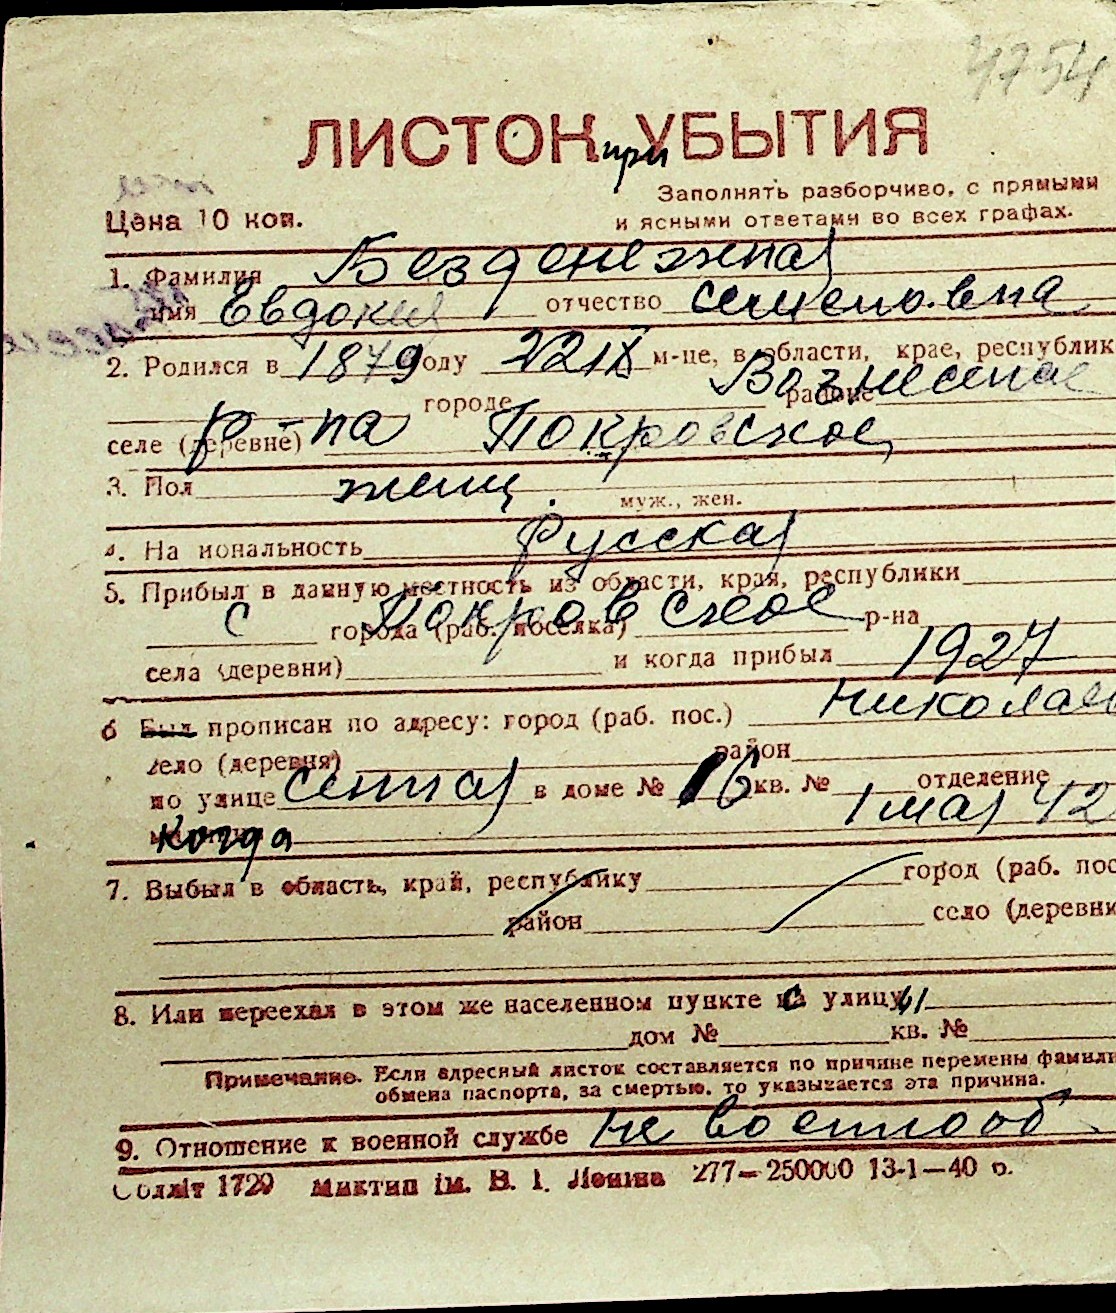 4754
ЛИСТОК при УБЫТИЯ
Заполнять разборчиво, с прямыми
Цена 10 коп.
и ясными ответами во всех графах.
1. Фамилия Безденежная
имя Евдокия отчество Семеновна
2. Родился в 1879 году 22 IX м-це, в области, крае, республик
городе районе Вознесенское
селе (деревне) р-на Покровское
3. Пол женщ. муж., жен.
4. На иональность Русская
5. Прибыл в данную местность из области, края, республики
с города (раб. поселка) Покровское р-на
села (деревни) и когда прибыл 1927
6 Был прописан по адресу: город (раб. пос.) Николаев
село (деревня) район
по улице Сенная в доме № 16 кв. № отделение
когда 1 мая 42
7. Выбыл в область, край, республику город (раб. пос
район село (деревни
8. Или переехал в этом же населенном пункте с улицы
дом № кв. №
Примечание. Если адресный листок составляется по причине перемены фамили
обмена паспорта, за смертью, то указывается эта причина.
9. Отношение к военной службе не военнооб
Облліт 1729 Миктип ім. В. І. Леніна 277—250000 13-1—40 р.